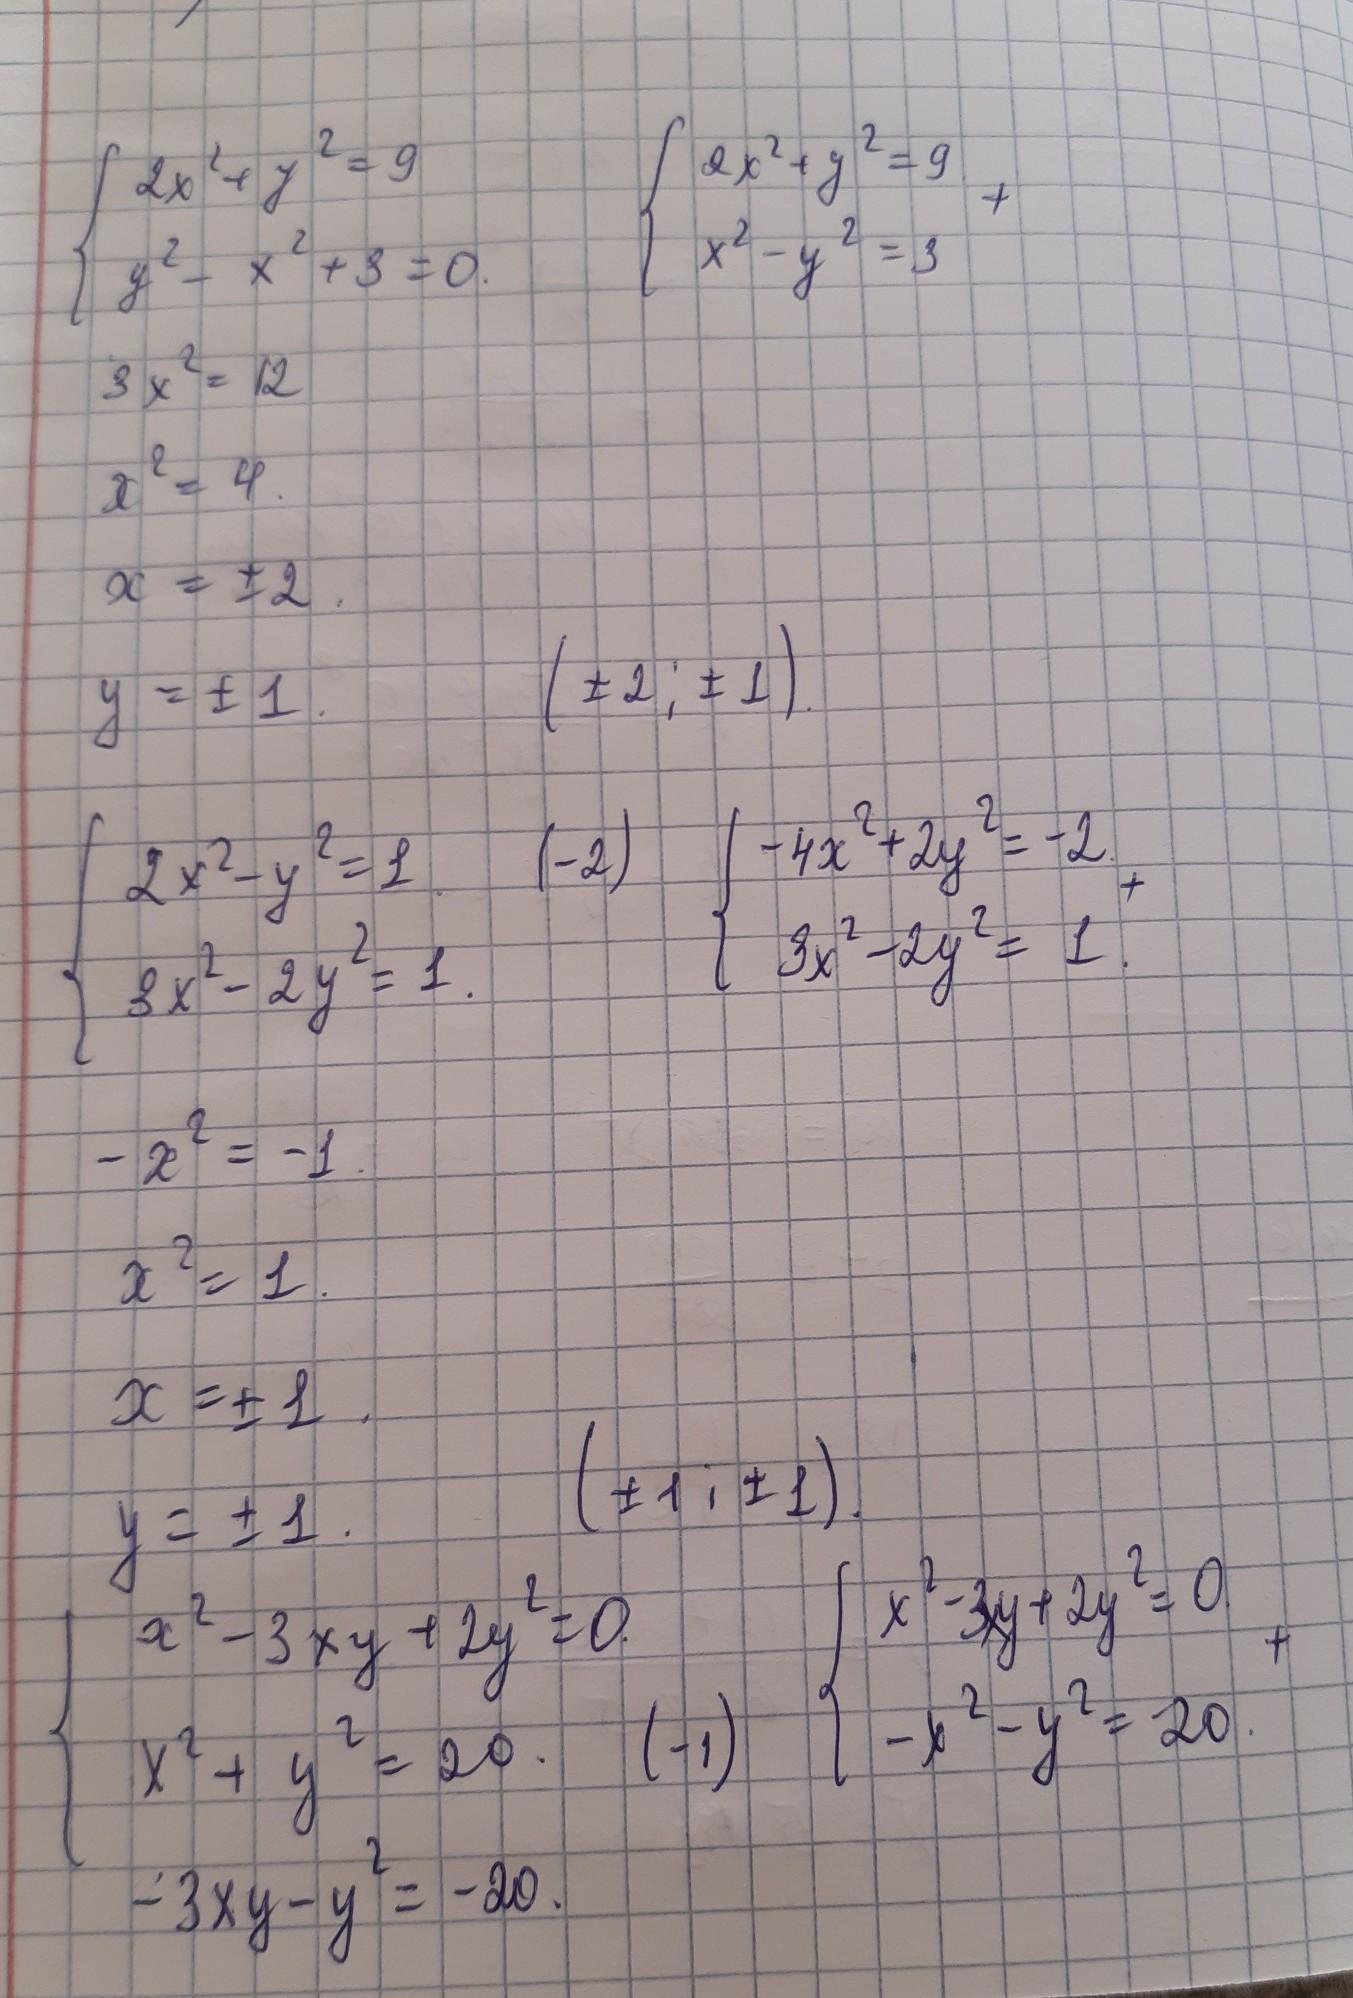 2x² + y² = 9
y² - x² + 3 = 0.
2x² + y² = 9
x² - y² = 3
+
3x² = 12
x² = 4.
x = ±2.
y = ±1.
(±2; ±1).
2x² - y² = 1.
3x² - 2y² = 1.
(-2)
-4x² + 2y² = -2.
3x² - 2y² = 1.
+
-x² = -1.
x² = 1.
x = ±1.
y = ±1.
(±1; ±1).
x² - 3xy + 2y² = 0.
x² + y² = 20.
(-1)
x² - 3xy + 2y² = 0
-x² - y² = -20.
+
-3xy - y² = -20.